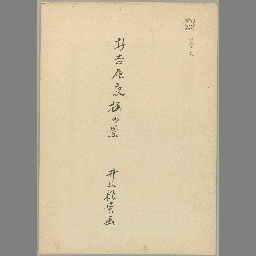 新吉原夜桜の景
井上探景画